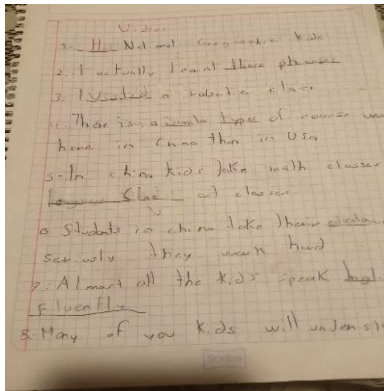 Video
1. Hi National Geographic Kids
2. I actually learnt these phrases
3. I visited a robotic class
4. There is a similar type of course
here in China than in USA
5-In china kids take math classes
art classes
6 Students in china take their
seriously they work hard
7-Almost all the kids speak
Fluently
8-Many of you kids will
Scribe